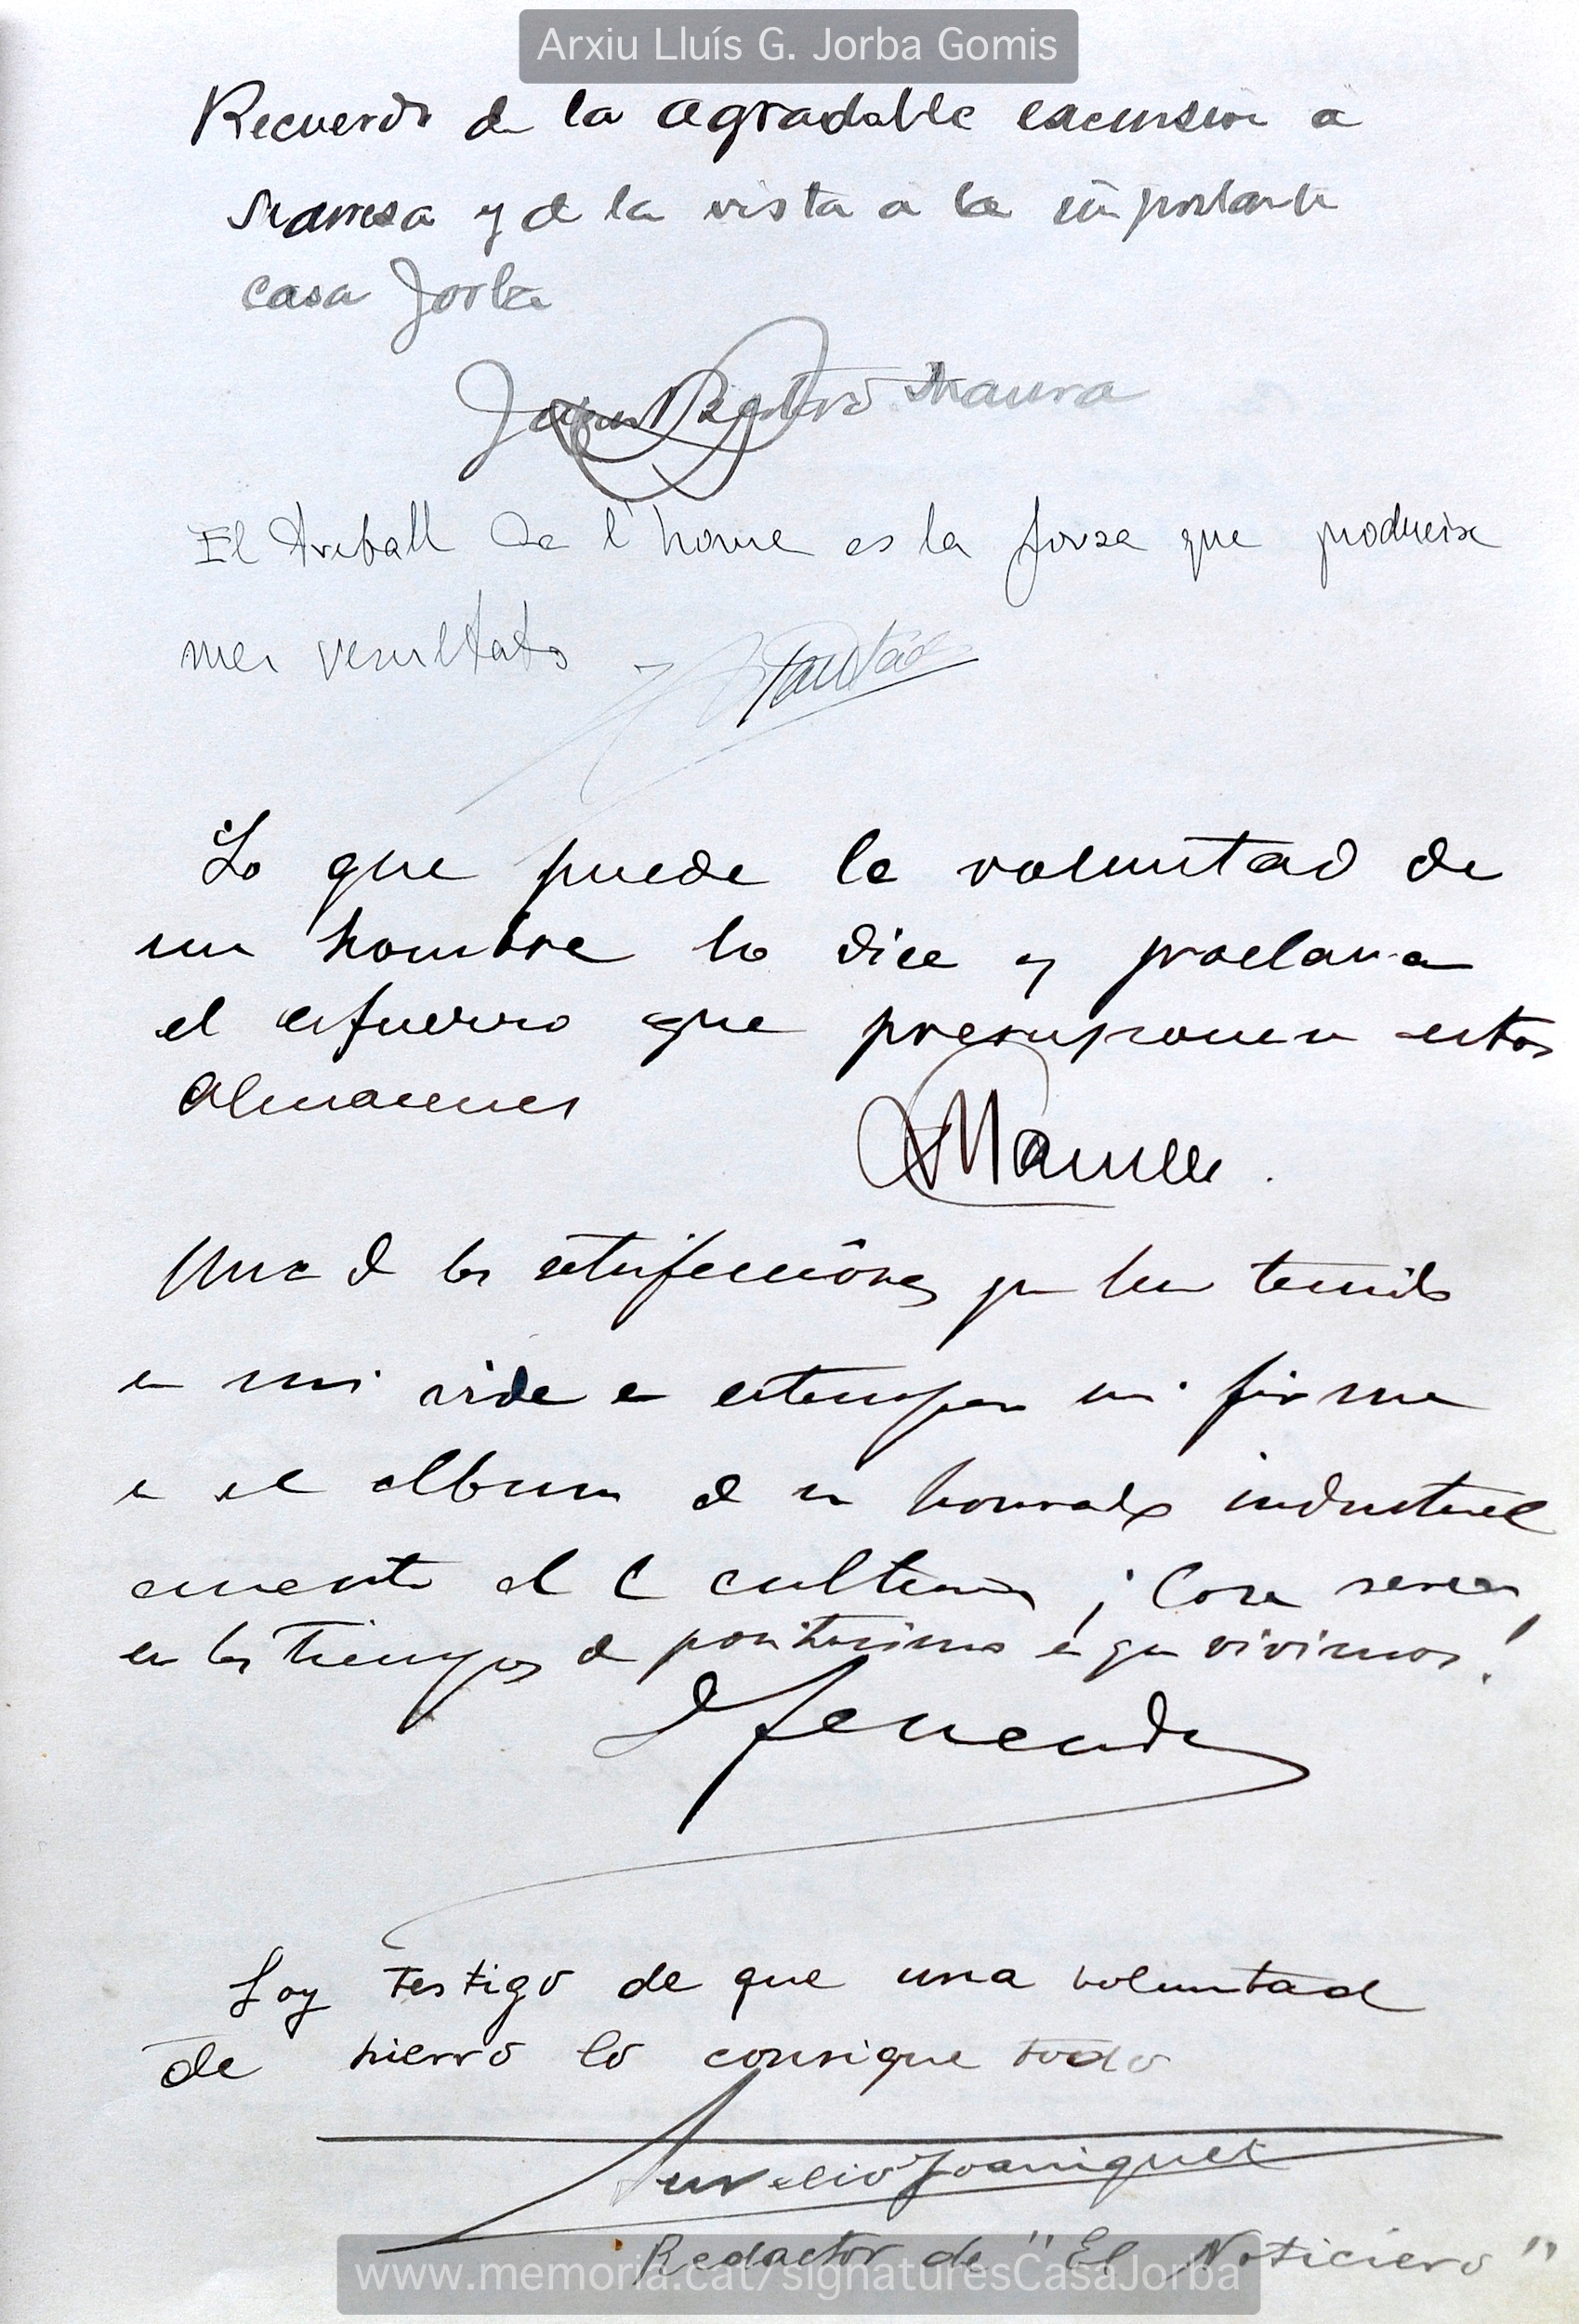 Arxiu Lluís G. Jorba Gomis
Recuerdo de la agradable excursion a
Manresa y de la visita a la importante
casa Jorba
Maura
El treball de l'home es la forsa que produeix
mes resultats
Lo que puede la voluntad de
un hombre lo dice y proclama
el esfuerzo que presuponen estos
almacenes
Una de las satisfacciones que he tenido
en mi vida es estampar mi firma
en el album de un honrado industrial
amante de la cultura ¡Cosa rara
en los tiempos de positivismo en que vivimos!
Soy testigo de que una voluntad
de hierro lo consigue todo
Aurelio Joaniquet
Redactor de "El Noticiero"
www.memoria.cat/signaturesCasaJorba